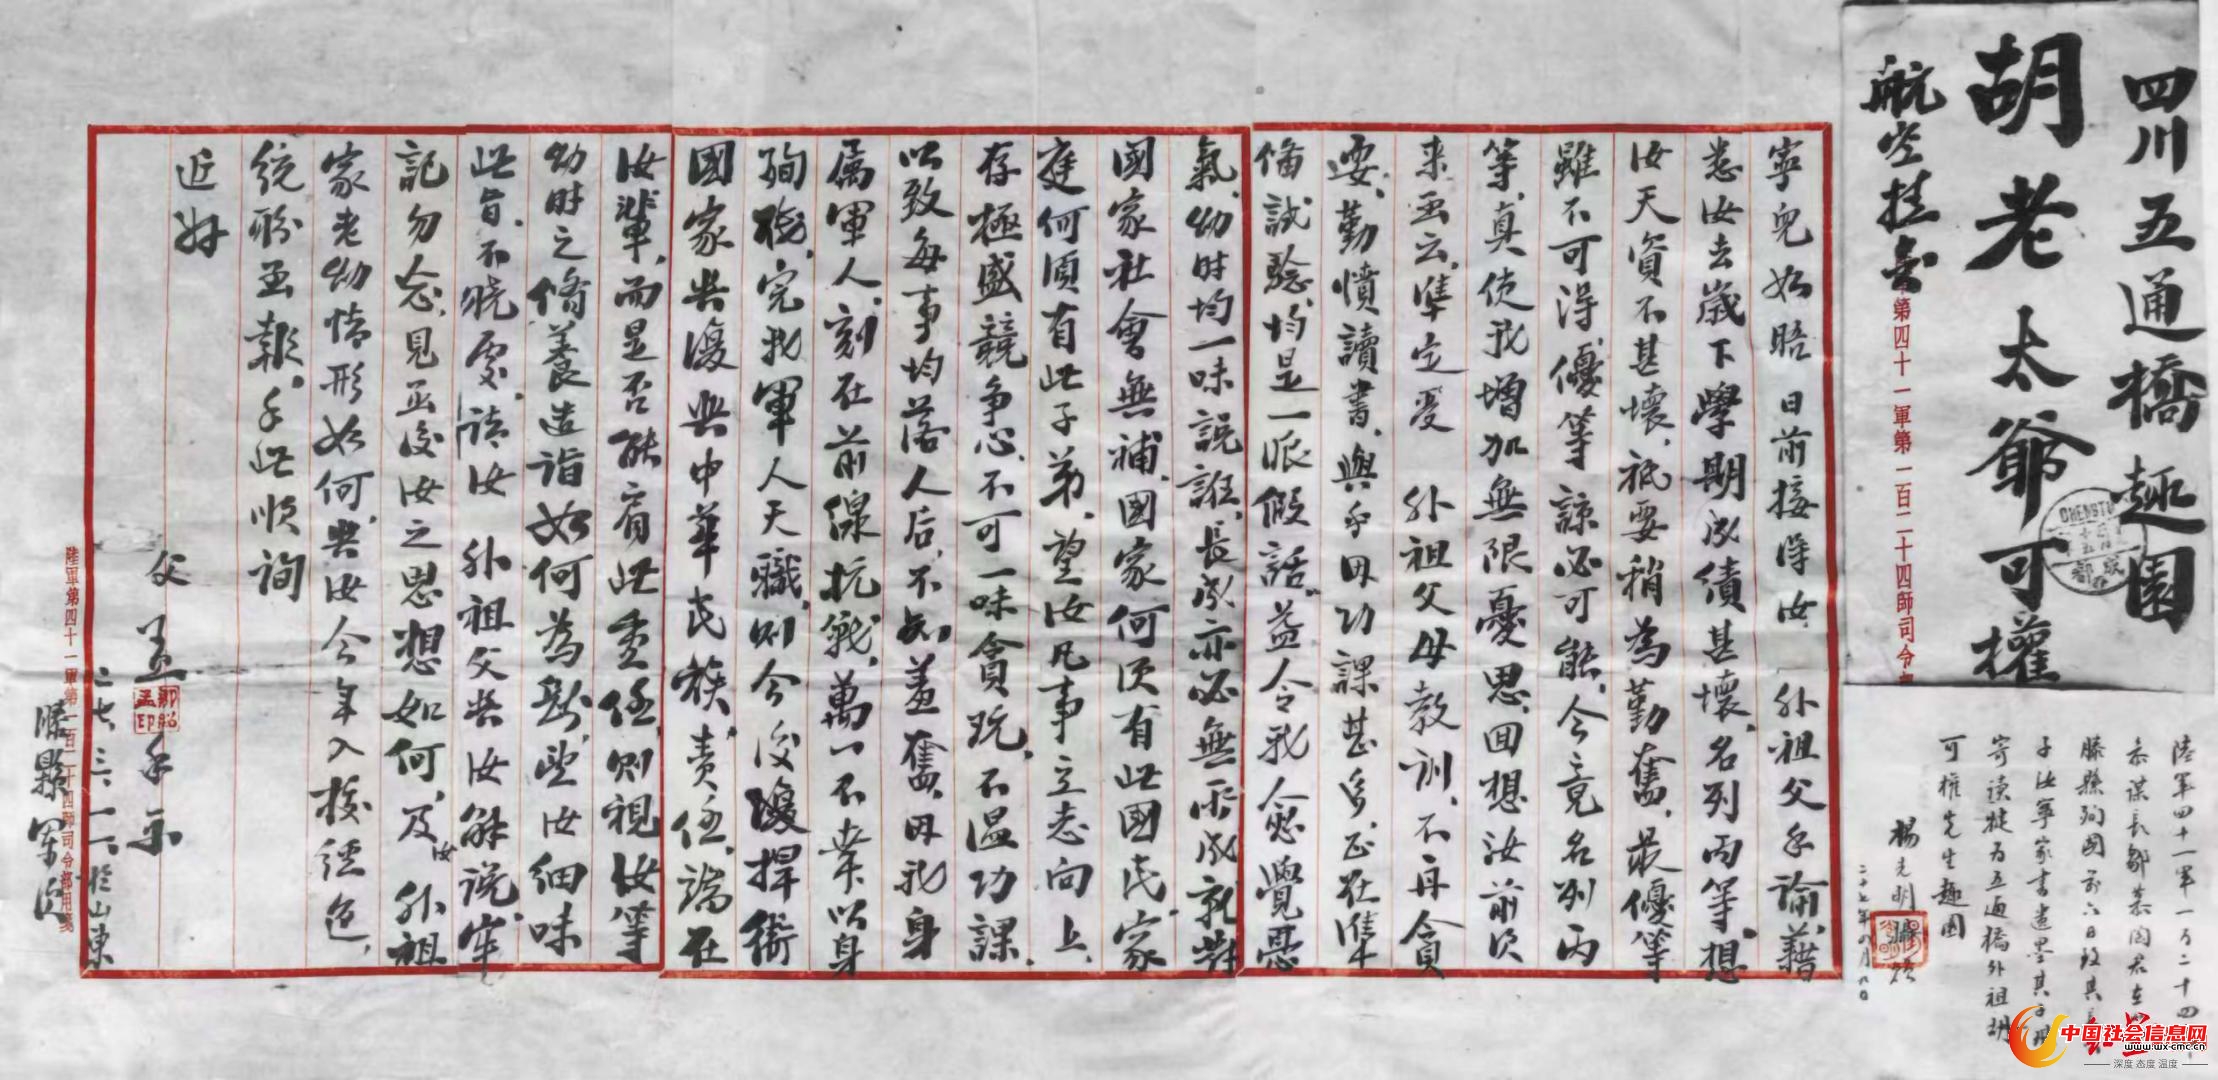 四川五通橋趣園
胡老太爺可權
航空挂号
第四十一軍第一百二十四師司令部
CHENGTU
成都
寧兒如晤日前接得汝外祖父手諭藉
悉汝去歲下學期成績甚壞、名列丙等、想
汝天資不甚壞、祇要稍為勤奮、最優等
雖不可得、優等諒必可能、今竟名列丙
等、真使我增加無限憂思、回想汝前次
來函云、準定受外祖父母教訓、不再貪
耍、勤憤讀書、與手册功課甚多、正在準
備試驗、均是一派假話、益令我愈覺憂
氣、幼時均一味說誑、長成亦必無所成就、對
國家社會無補、國家何須有此國民、家
庭何須有此子弟、望汝凡事立志向上、
存極盛競爭心、不可一味貪玩、不温功課、
以致每事均落人后、不知羞奮、毋我身
屬軍人、刻在前線抗戰、萬一不幸以身
殉職、完我軍人天職、則今後復捍衛
國家與復興中華民族、責任、端在
汝輩、而是否能肩此重任、則視汝等
幼時之修養造詣如何為斷、望汝細味
此旨、不曉處、請汝外祖父與汝解説、牢
記勿忘、見函後汝之思想如何、及汝外祖
家老幼情形如何、與汝今年入校經過、
統盼函報、手此順詢
近好
父孟手示
鄒紹孟印
二七、三、一一、於山東
滕縣軍次
陸軍第四十一軍第一百二十四師司令部用箋
陸軍四十一軍一百二十四師
參謀長鄒慕陶君在山東
滕縣殉國前六日致其長
子汝寧家書遺墨其子現
寄讀犍為五通橋外祖胡
可權先生趣園
楊光明謹識
二十七年八月八日
中国社会信息网
www.wx-cmc.cn
深度 态度 温度